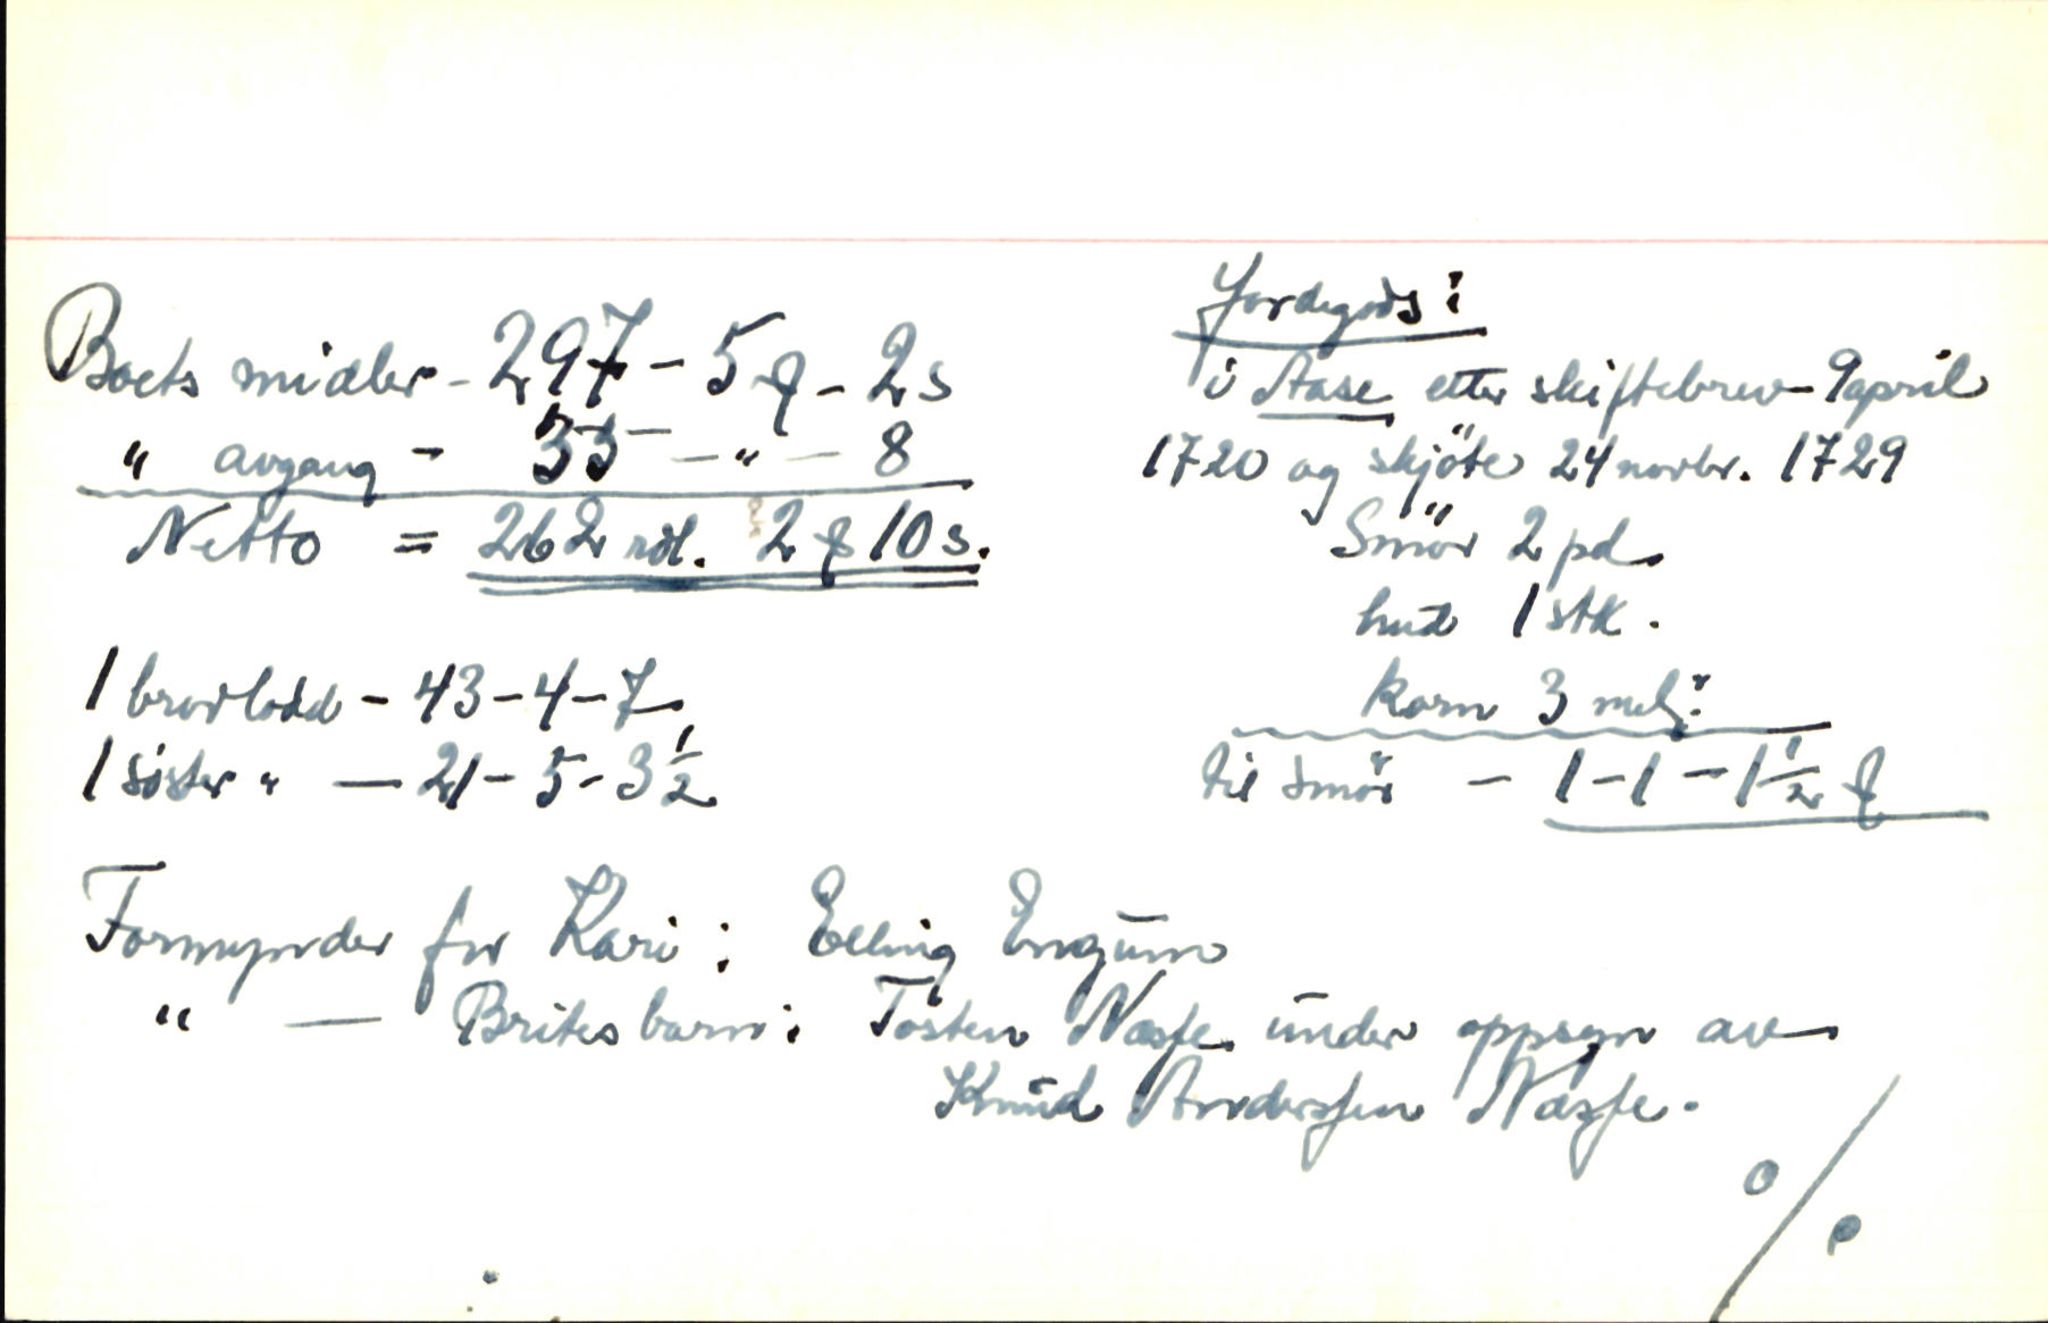 Boets midler - 297 - 5 ꝗ - 2 s
" avgang - 35 - " - 8
Netto = 262 rdl. 2 ꝗ 10 s.
1 brorlodd - 43 - 4 - 7
1 söster " - 21 - 5 - 3 1/2
Jordegods:
i Aase etter skiftebrev - 9 april
1720 og skjöte 24 novbr. 1729
Smör 2 pd.
hud 1 stk.
korn 3 mel:
til smör - 1 - 1 - 1 1/2 ꝗ
Formynder for Kari: Elling Engum
" — Brites barn: Tosten Næsse under oppsyn av
Knud Anderssen Næsse.
o/o